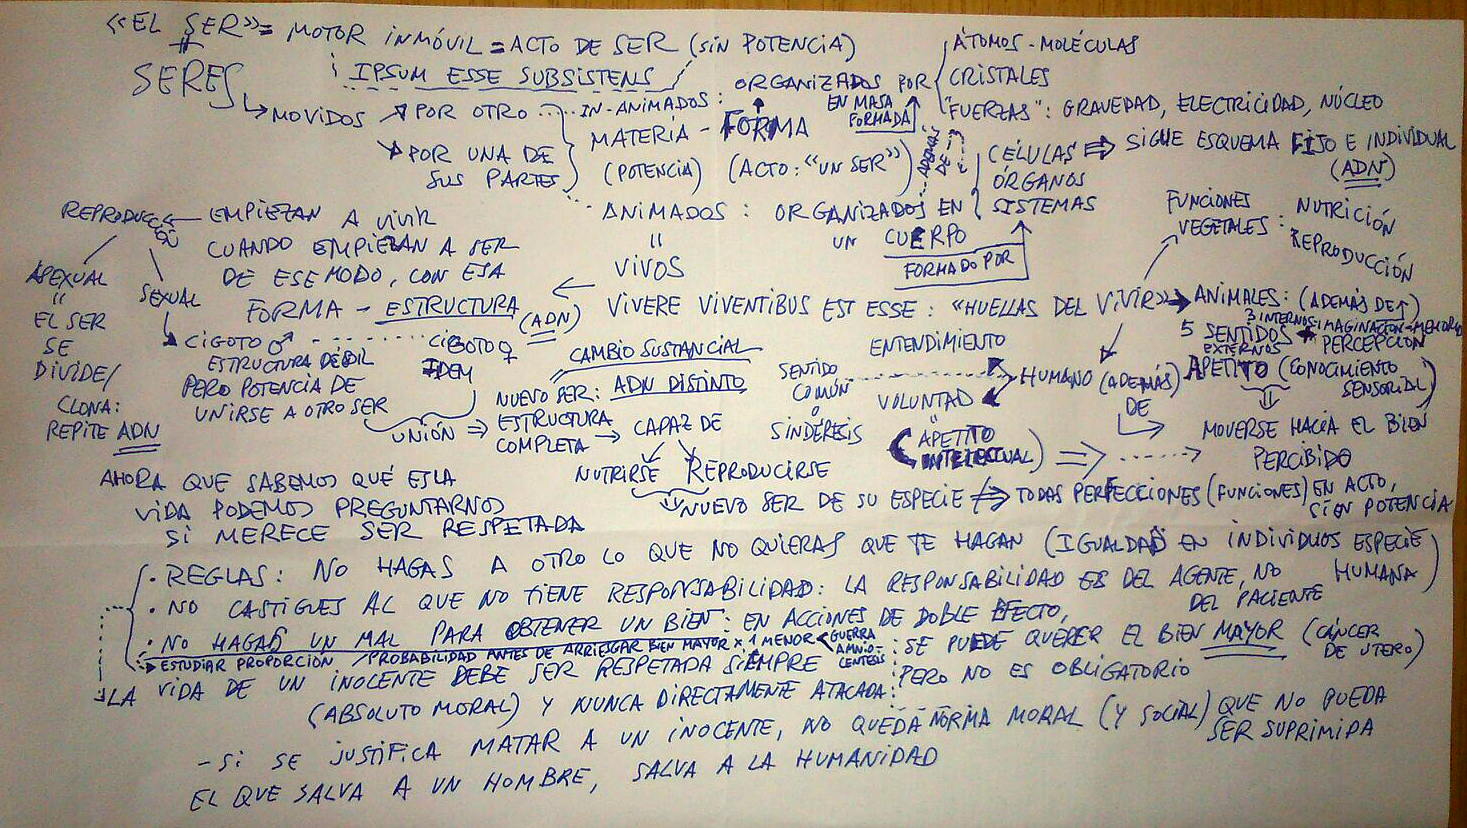 «EL SER» = MOTOR INMÓVIL = ACTO DE SER (SIN POTENCIA)
IPSUM ESSE SUBSISTENS
≠
SERES
MOVIDOS
POR OTRO
POR UNA DE
SUS PARTES
IN-ANIMADOS: ORGANIZADOS POR
EN MASA
FORMADA
ÁTOMOS - MOLÉCULAS
CRISTALES
"FUERZAS": GRAVEDAD, ELECTRICIDAD, NÚCLEO
MATERIA - FORMA
(POTENCIA) (ACTO: "UN SER")
ADEMÁS
DE
CÉLULAS ⇒ SIGUE ESQUEMA FIJO E INDIVIDUAL
(ADN)
ÓRGANOS
SISTEMAS
ANIMADOS: ORGANIZADOS EN
UN CUERPO
FORMADO POR
"
VIVOS
FUNCIONES
VEGETALES: NUTRICIÓN
REPRODUCCIÓN
VIVERE VIVENTIBUS EST ESSE: «HUELLAS DEL VIVIR»
ANIMALES: (ADEMÁS DE↑)
3 INTERNOS: IMAGINACIÓN-MEMORIA
PERCEPCIÓN
5 SENTIDOS
EXTERNOS
APETITO (CONOCIMIENTO
SENSORIAL)
MOVERSE HACIA EL BIEN
PERCIBIDO
HUMANO (ADEMÁS)
DE
ENTENDIMIENTO
VOLUNTAD
"
(APETITO
INTELECTUAL)
SENTIDO
COMÚN
O
SINDÉRESIS
EMPIEZAN A VIVIR
CUANDO EMPIEZAN A SER
DE ESE MODO, CON ESA
FORMA - ESTRUCTURA
(ADN)
REPRODUCCIÓN
ASEXUAL
"
EL SER
SE
DIVIDE/
CLONA:
REPITE ADN
SEXUAL
CIGOTO ♂
ESTRUCTURA DÉBIL
PERO POTENCIA DE
UNIRSE A OTRO SER
CIGOTO ♀
IDEM
UNIÓN ⇒
CAMBIO SUSTANCIAL
NUEVO SER: ADN DISTINTO
ESTRUCTURA
COMPLETA → CAPAZ DE
NUTRIRSE REPRODUCIRSE
NUEVO SER DE SU ESPECIE ⇒ TODAS PERFECCIONES (FUNCIONES) EN ACTO,
SI EN POTENCIA
AHORA QUE SABEMOS QUÉ ES LA
VIDA PODEMOS PREGUNTARNOS
SI MERECE SER RESPETADA
· REGLAS: NO HAGAS A OTRO LO QUE NO QUIERAS QUE TE HAGAN (IGUALDAD EN INDIVIDUOS ESPECIE
HUMANA)
· NO CASTIGUES AL QUE NO TIENE RESPONSABILIDAD: LA RESPONSABILIDAD ES DEL AGENTE, NO
DEL PACIENTE
· NO HAGAS UN MAL PARA OBTENER UN BIEN: EN ACCIONES DE DOBLE EFECTO,
SE PUEDE QUERER EL BIEN MAYOR (CÁNCER
DE ÚTERO)
PERO NO ES OBLIGATORIO
ESTUDIAR PROPORCIÓN / PROBABILIDAD ANTES DE ARRIESGAR BIEN MAYOR × 1 MENOR
GUERRA
AMNIO-
CENTESIS
LA VIDA DE UN INOCENTE DEBE SER RESPETADA SIEMPRE
(ABSOLUTO MORAL) Y NUNCA DIRECTAMENTE ATACADA:
- SI SE JUSTIFICA MATAR A UN INOCENTE, NO QUEDA NORMA MORAL (Y SOCIAL) QUE NO PUEDA
SER SUPRIMIDA
EL QUE SALVA A UN HOMBRE, SALVA A LA HUMANIDAD